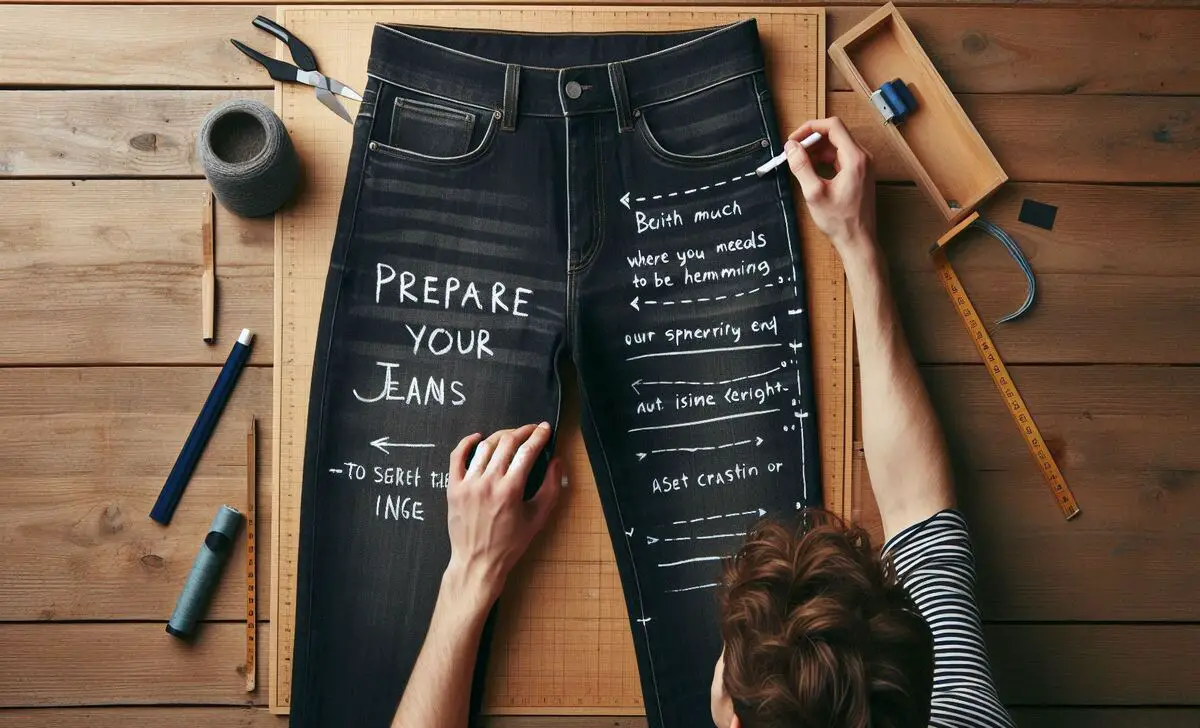 PREPARE
YOUR
JEANS
-TO SERET THE
INGE
Beuith much
where you meeds
to be hemmiing
our spnerrity end
Aut isine
Aset crastin or